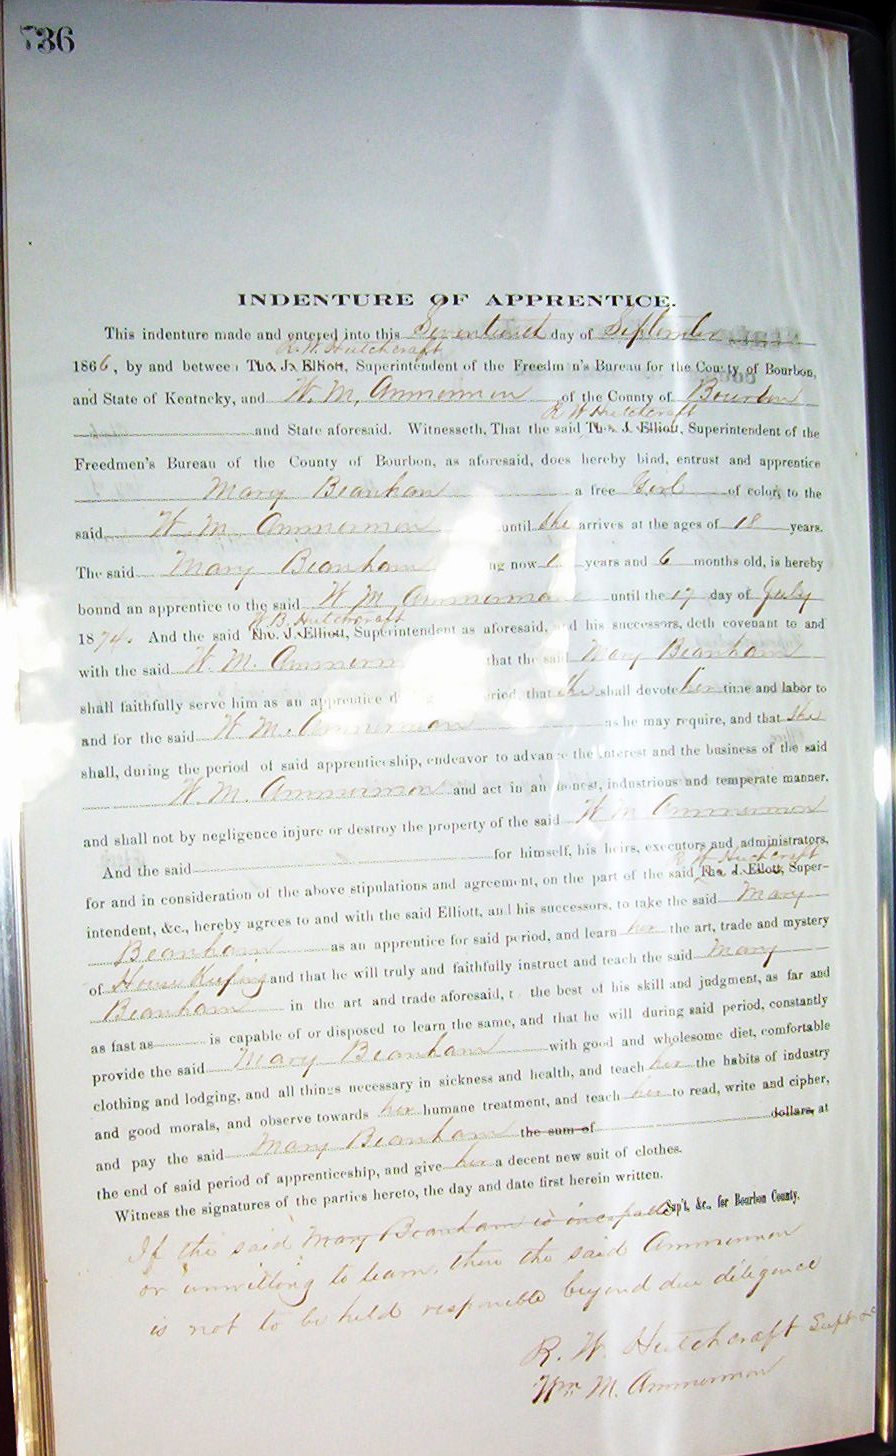 736
INDENTURE OF APPRENTICE.
This indenture made and entered into this Seventienth day of September
R. W. Hutchcraft
1866, by and between Tho. J. Elliott, Superintendent of the Freedmen's Bureau for the County of Bourbon,
and State of Kentncky, and W. M. Ammermon of the County of Bourbon
R W Hutchcraft
and State aforesaid. Witnesseth, That the said Tho. J. Elliott, Superintendent of the
Freedmen's Bureau of the County of Bourbon, as aforesaid, does hereby bind, entrust and apprentice
Mary Beanham a free Girl of color, to the
said W. M. Ammermon until she arrives at the ages of 18 years.
The said Mary Beanham now years and 6 months old, is hereby
bound an apprentice to the said W M Ammermon until the 17 day of July
W. B. Hutchcraft
1874. And the said Tho. J. Elliott, Superintendent as aforesaid, and his successors, deth covenant to and
with the said W. M. Ammermon that the said Mary Beanham
shall faithfully serve him as an apprentice that she shall devote her time and labor to
and for the said W. M. Ammermon as he may require, and that she
shall, during the period of said apprenticeship, endeavor to advance the interest and the business of the said
W. M. Ammermon and act in an honest, industrious and temperate manner,
and shall not by negligence injure or destroy the property of the said W M Ammermon
And the said for himself, his heirs, executors and administrators,
R W Hutchcraft
for and in consideration of the above stipulations and agreement, on the part of the said Tho. J. Ellott, Super-
intendent, &c., hereby agrees to and with the said Elliott, and his successors, to take the said Mary
Beanham as an apprentice for said period, and learn her the art, trade and mystery
of House Keeping and that he will truly and faithfully instruct and teach the said Mary
Beanham in the art and trade aforesaid, to the best of his skill and judgment, as far and
as fast as is capable of or disposed to learn the same, and that he will during said period, constantly
provide the said Mary Beanham with good and wholesome diet, comfortable
clothing and lodging, and all things necessary in sickness and health, and teach her the habits of industry
and good morals, and observe towards her humane treatment, and teach her to read, write and cipher,
and pay the said Mary Beanham the sum of dollars, at
the end of said period of apprenticeship, and give her a decent new suit of clothes.
Witness the signatures of the parties hereto, the day and date first herein written.
Sup't, &c., for Bourbon County.
If the said Mary Beanham is incapable
or unwilling to learn, then the said Ammermon
is not to be held responsible beyond due diligence
R. W Hutchcraft Supt &c
Wm M. Ammermon